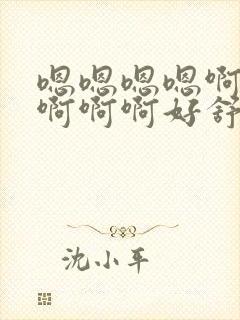 嗯嗯嗯嗯啊
啊啊啊好舒
沈小平